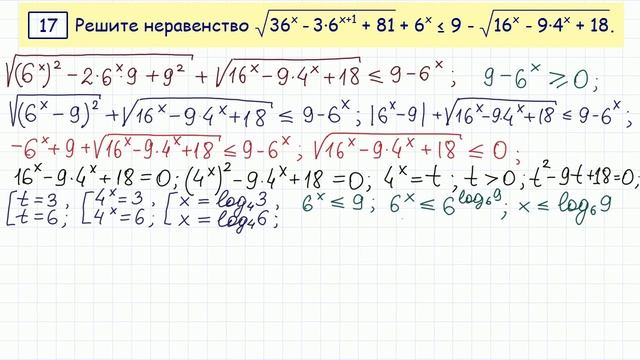 17 Решите неравенство √(36ˣ - 3·6ˣ⁺¹ + 81) + 6ˣ ≤ 9 - √(16ˣ - 9·4ˣ + 18).
√((6ˣ)² - 2·6ˣ·9 + 9²) + √(16ˣ - 9·4ˣ + 18) ≤ 9 - 6ˣ; 9 - 6ˣ ≥ 0;
√((6ˣ - 9)²) + √(16ˣ - 9·4ˣ + 18) ≤ 9 - 6ˣ; |6ˣ - 9| + √(16ˣ - 9·4ˣ + 18) ≤ 9 - 6ˣ;
-6ˣ + 9 + √(16ˣ - 9·4ˣ + 18) ≤ 9 - 6ˣ; √(16ˣ - 9·4ˣ + 18) ≤ 0;
16ˣ - 9·4ˣ + 18 = 0; (4ˣ)² - 9·4ˣ + 18 = 0; 4ˣ = t; t > 0; t² - 9t + 18 = 0;
[t = 3; [4ˣ = 3; [x = log₄3; 6ˣ ≤ 9; 6ˣ ≤ 6^(log₆9); x ≤ log₆9
t = 6; 4ˣ = 6; x = log₄6;